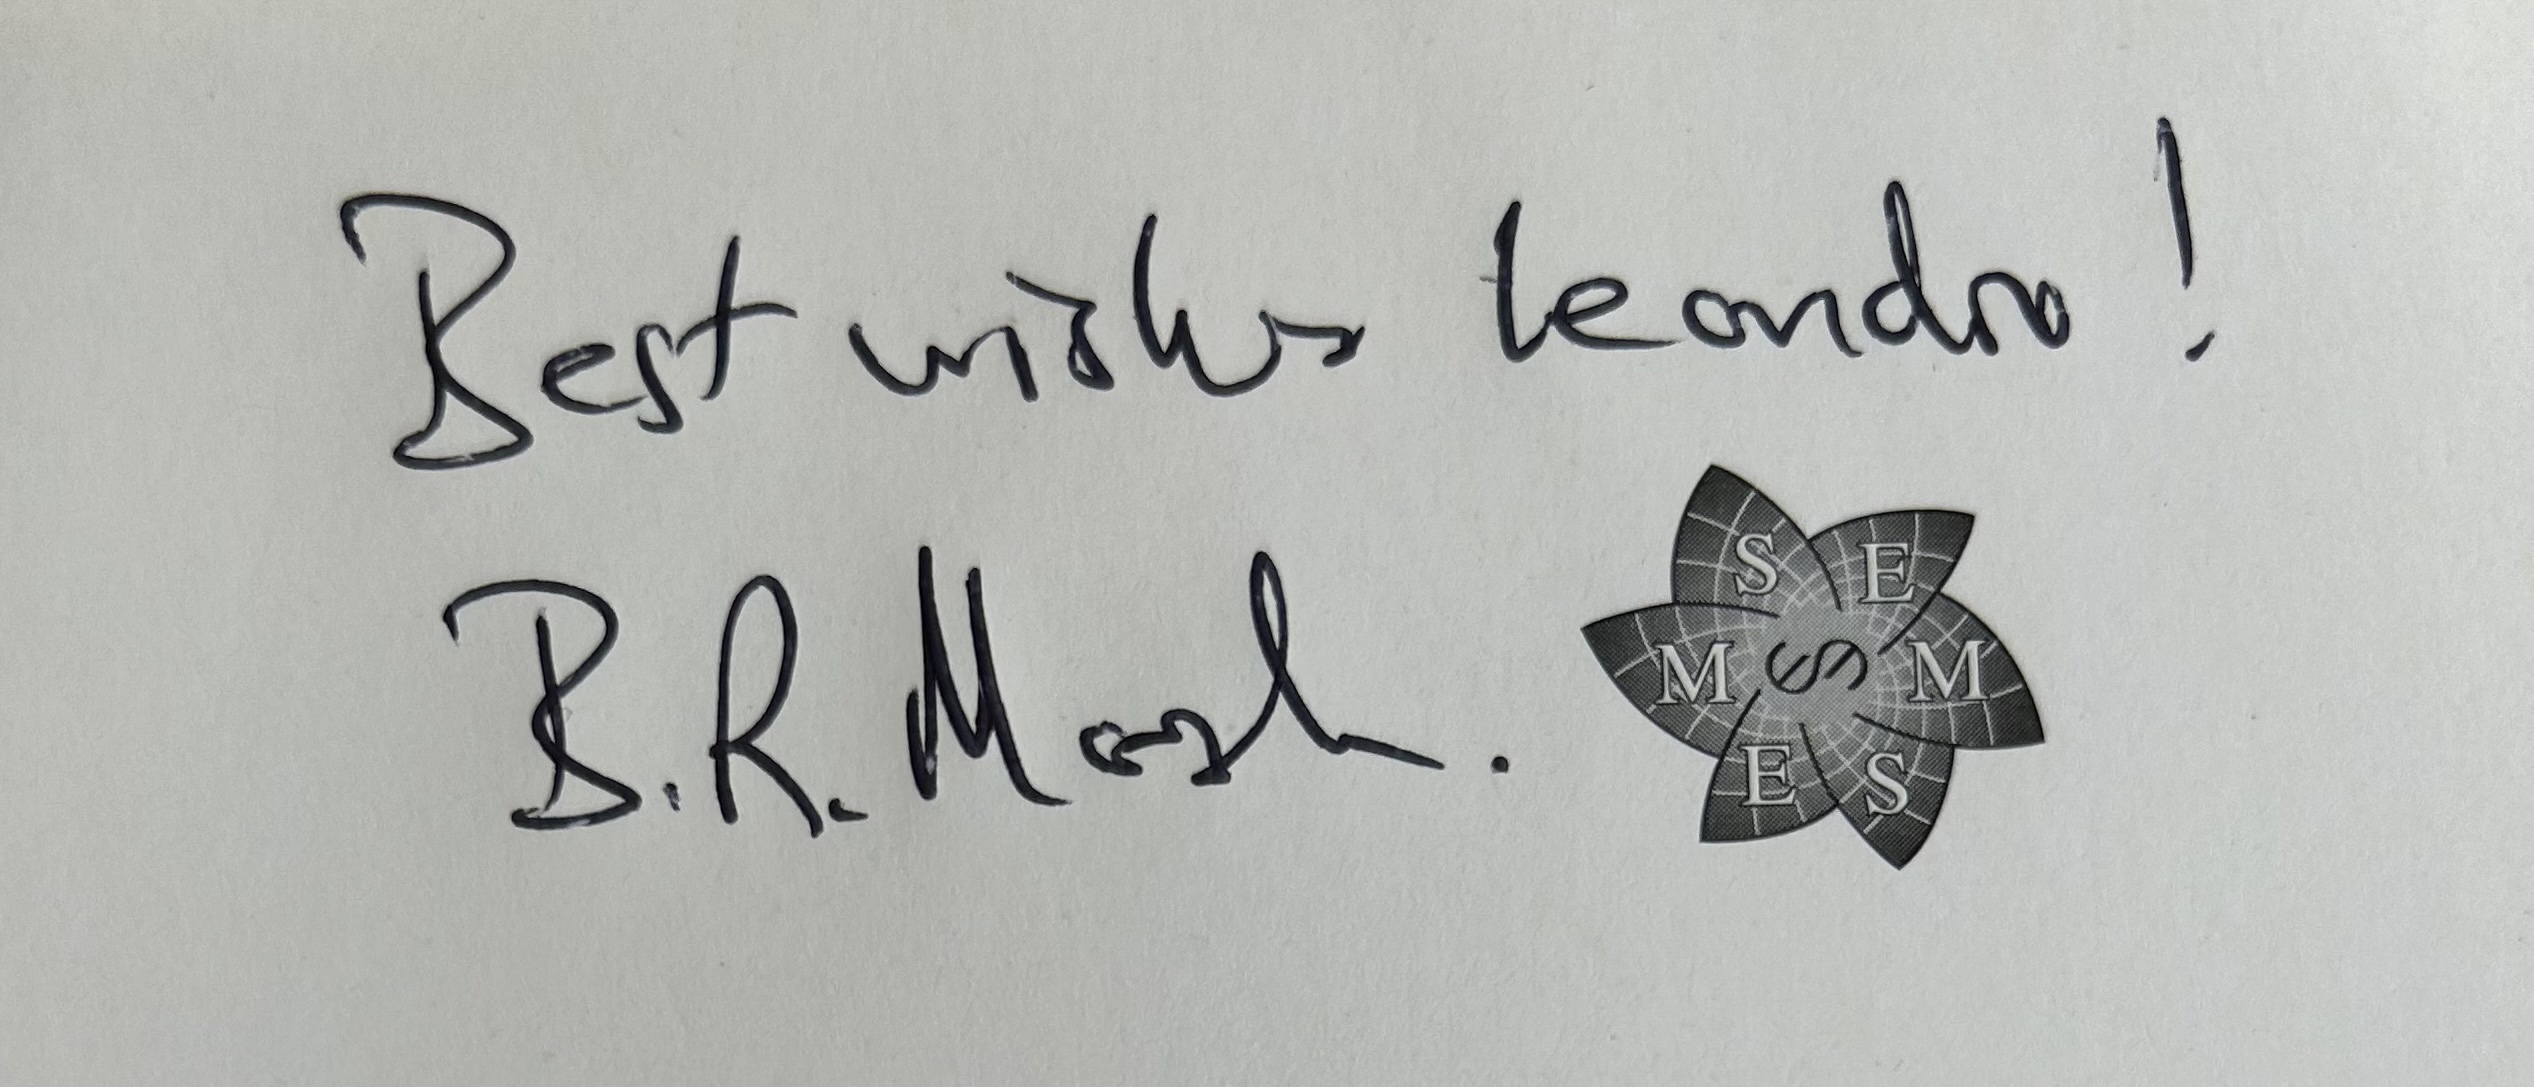 Best wishes Leandro!
B.R. Marsh.
S E
M S M
E S